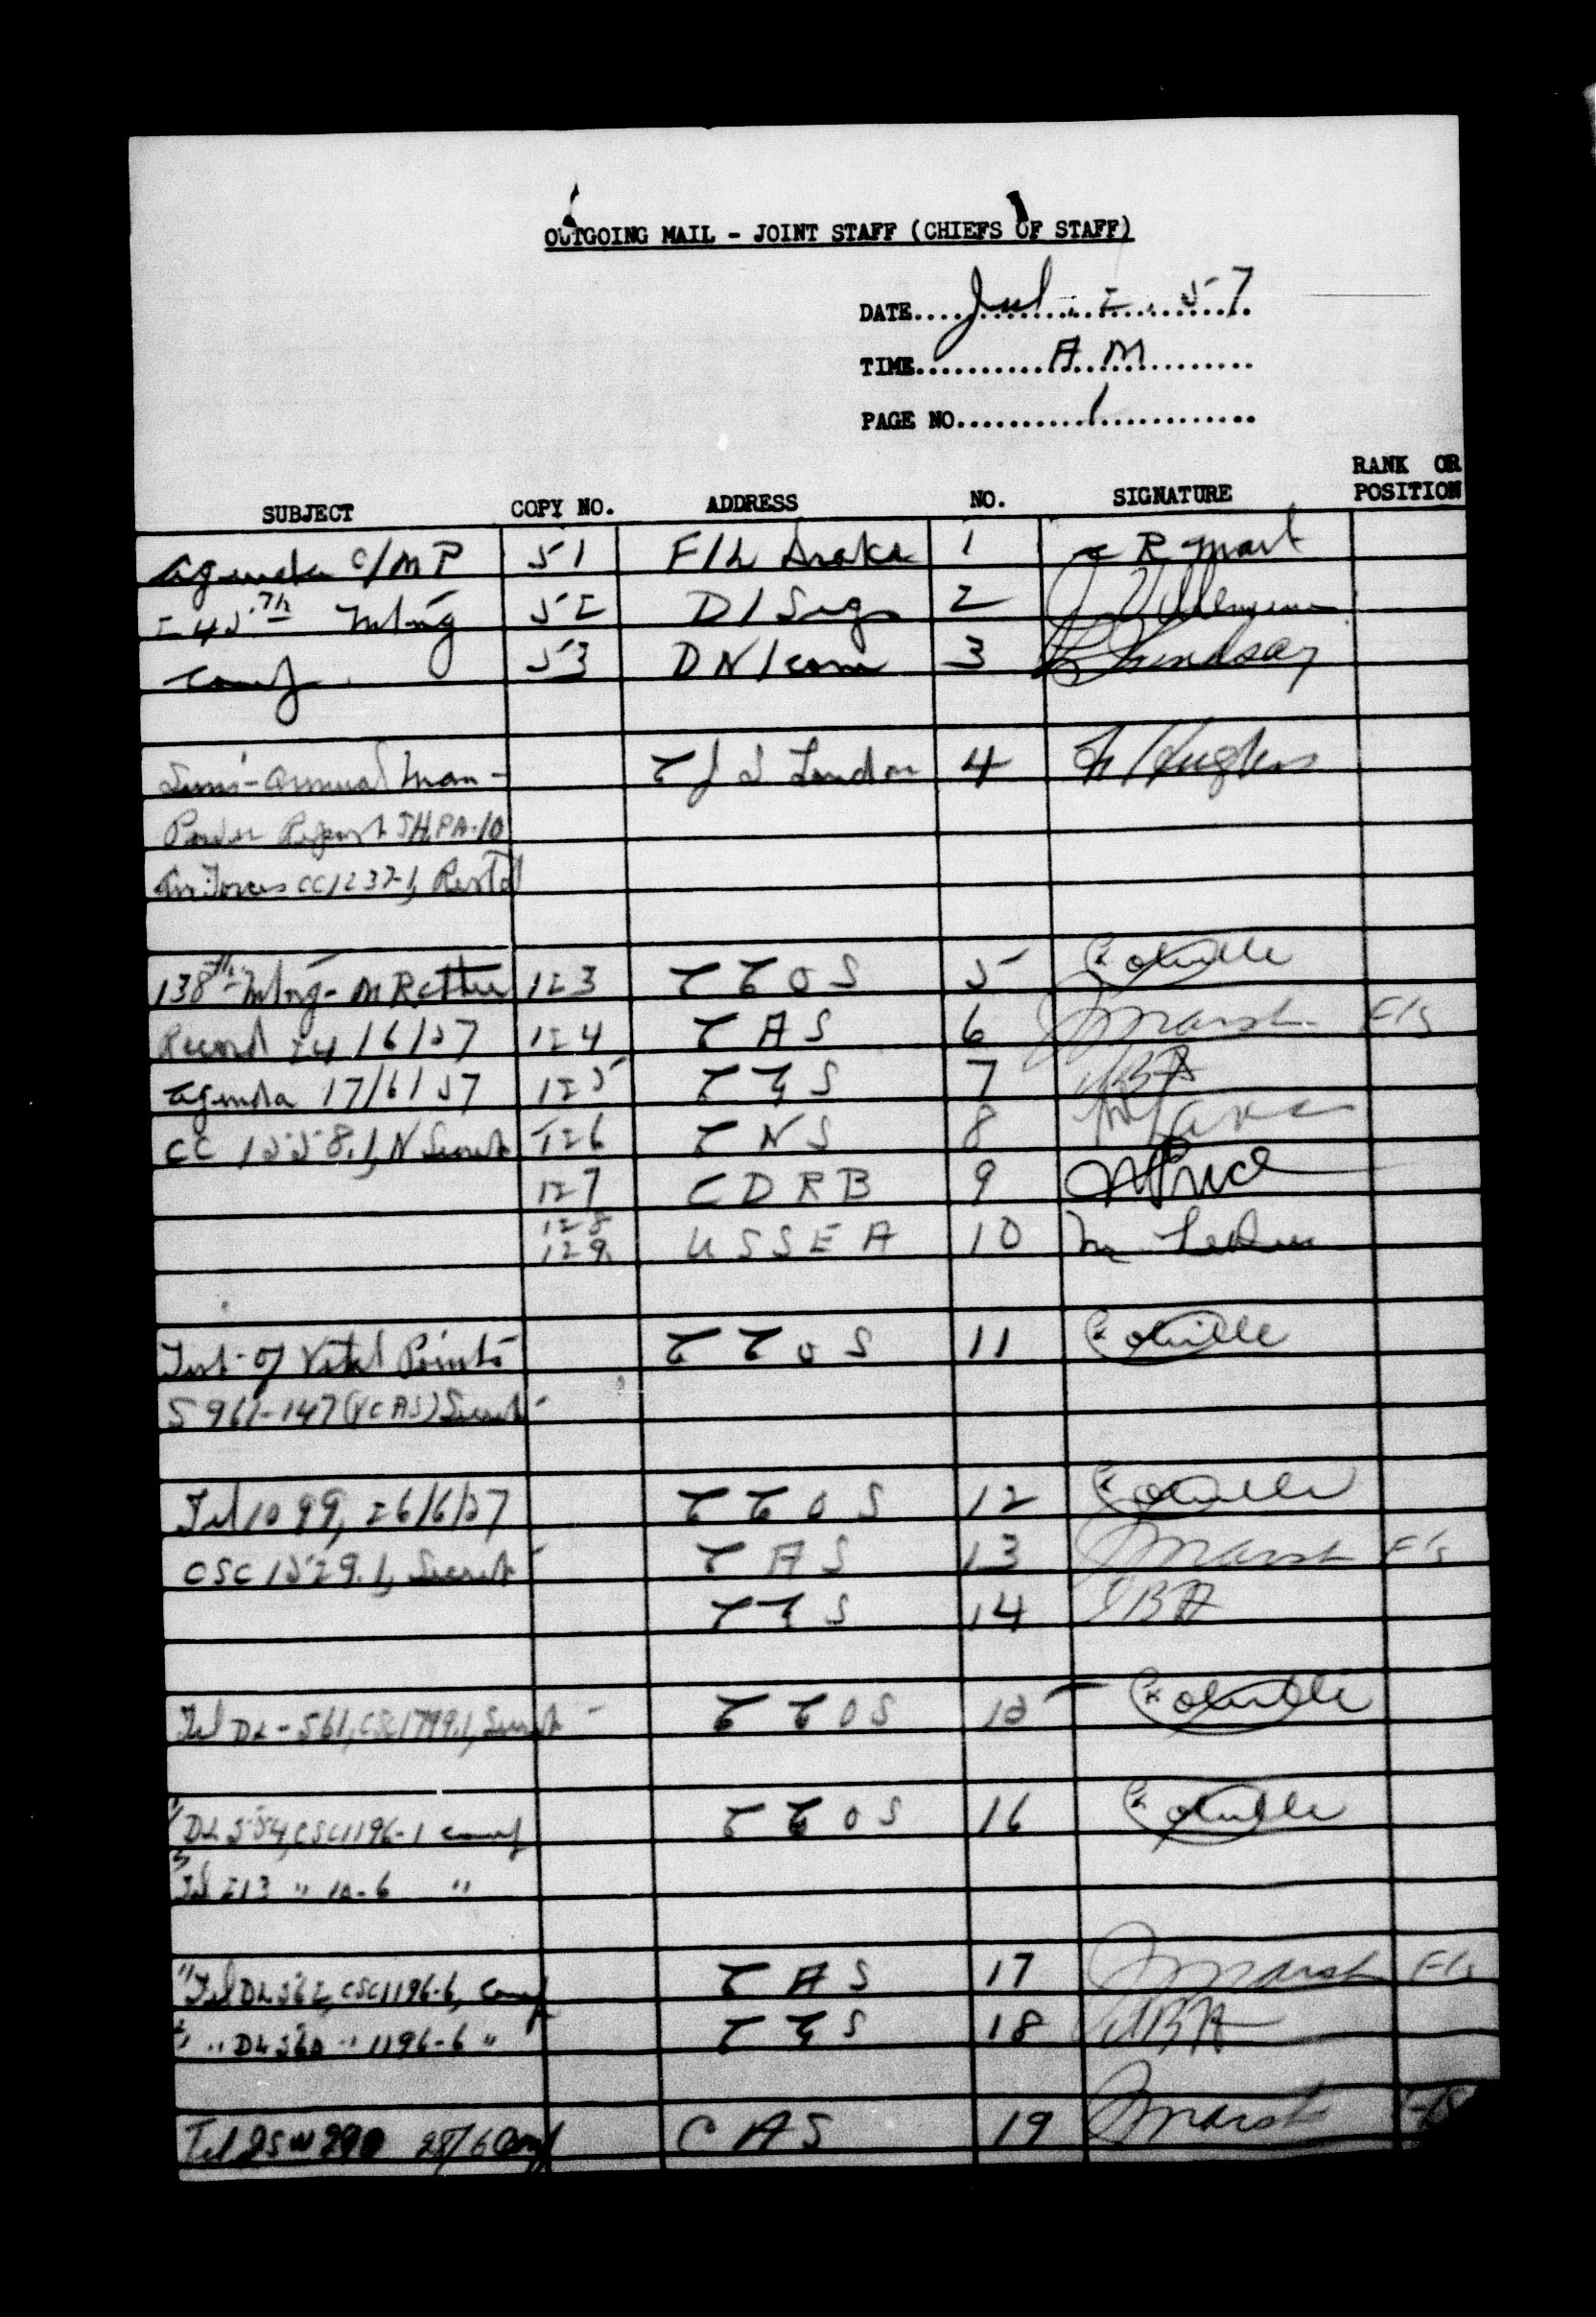 OUTGOING MAIL - JOINT STAFF (CHIEFS OF STAFF)
DATE.... Jul. 2. 57
TIME.... A.M
PAGE NO.... 1
SUBJECT COPY NO. ADDRESS NO. SIGNATURE RANK OR POSITION
Agenda C/MP 51 F/L Drake 1 R Mart
245th Mtng 52 D/Sigs 2
Conf. 53 DN/Com 3 Lindsay
Semi-Annual Man- CJS London 4 Hughes
Power Report JHPA-10
Forces CC1237-1, Rest'd
138th Mtng - MRCttee 123 CCOS 5
Record 24/6/57 124 CAS 6 Marsh F/S
Agenda 17/6/57 125 CGS 7
CC 1558.1, N Secret 126 CNS 8
127 CDRB 9 Price
128
129 USSEA 10
of Vital Points CCOS 11
S961-147 (VCAS) Secret
Tel 1099, 26/6/57 CCOS 12
CSC 1529.1, Secret CAS 13 Marsh F/S
CGS 14
Tel DL-561, CSC1799.1, Secret CCOS 15
DL 554, CSC1196-1 Conf CCOS 16
Tel 213 " 10-6 "
" Tel DL562, CSC1196-6, Conf CAS 17 Marsh F/S
" DL560 " 1196-6 " CGS 18
Tel DSW 290 28/6 Conf CAS 19 Marsh F/S